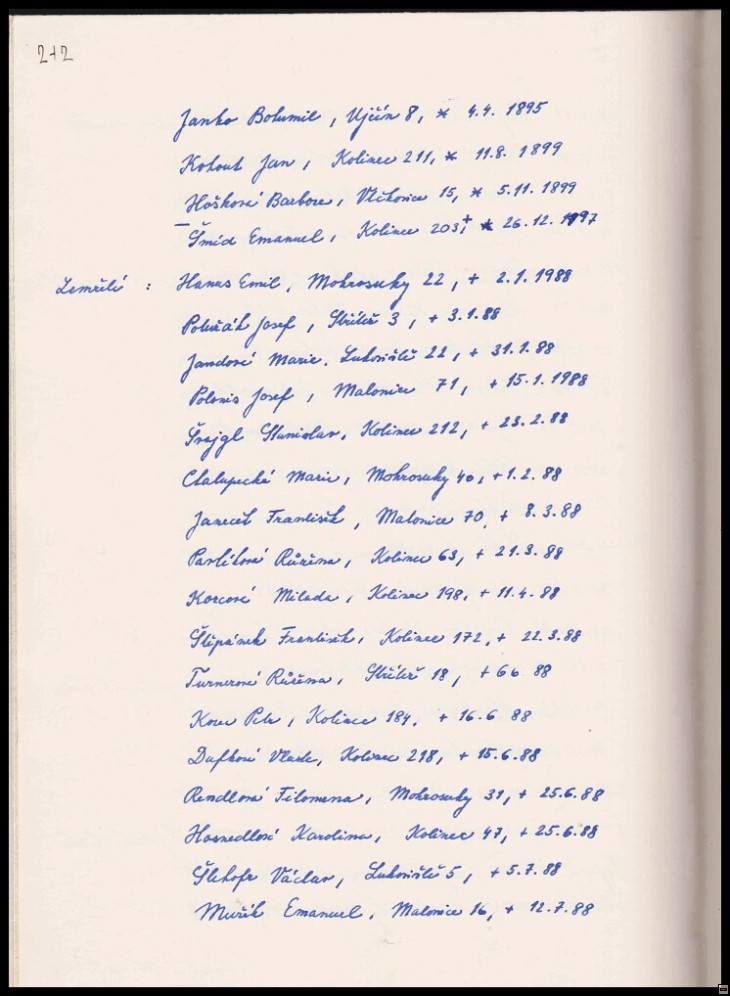 212
Janko Bohumil, Ujčín 8, * 4.4. 1895
Kohout Jan, Kolinec 211, * 11.8. 1899
Hošková Barbora, Vlčkovice 15, * 5.11. 1899
Šmíd Emanuel, Kolinec 203, + * 26.12. 1997
Zemřelí : Hanus Emil, Mokrosuky 22, + 2.1.1988
Josef, Střítež 3, + 3.1.88
Jandová Marie. Lukoviště 22, + 31.1.88
Polonis Josef, Malonice 71, + 15.1.1988
Šrajgl Stanislav, Kolinec 212, + 23.2.88
Chalupecká Marie, Mokrosuky 40, + 1.2.88
Janeček František, Malonice 70, + 8.3.88
Pavlíková Růžena, Kolinec 63, + 21.3.88
Korcová Milada, Kolinec 198, + 11.4.88
Štěpánek František, Kolinec 172, + 22.3.88
Turnerová Růžena, Střítež 18, + 6 6 88
Korec Petr, Kolinec 184, + 16.6 88
Dufková Vlasta, Kolinec 218, + 15.6.88
Rendlová Filomena, Mokrosuky 31, + 25.6.88
Hosnedlová Karolina, Kolinec 47, + 25.6.88
Václav, Lukoviště 5, + 5.7.88
Mužík Emanuel, Malonice 16, + 12.7.88